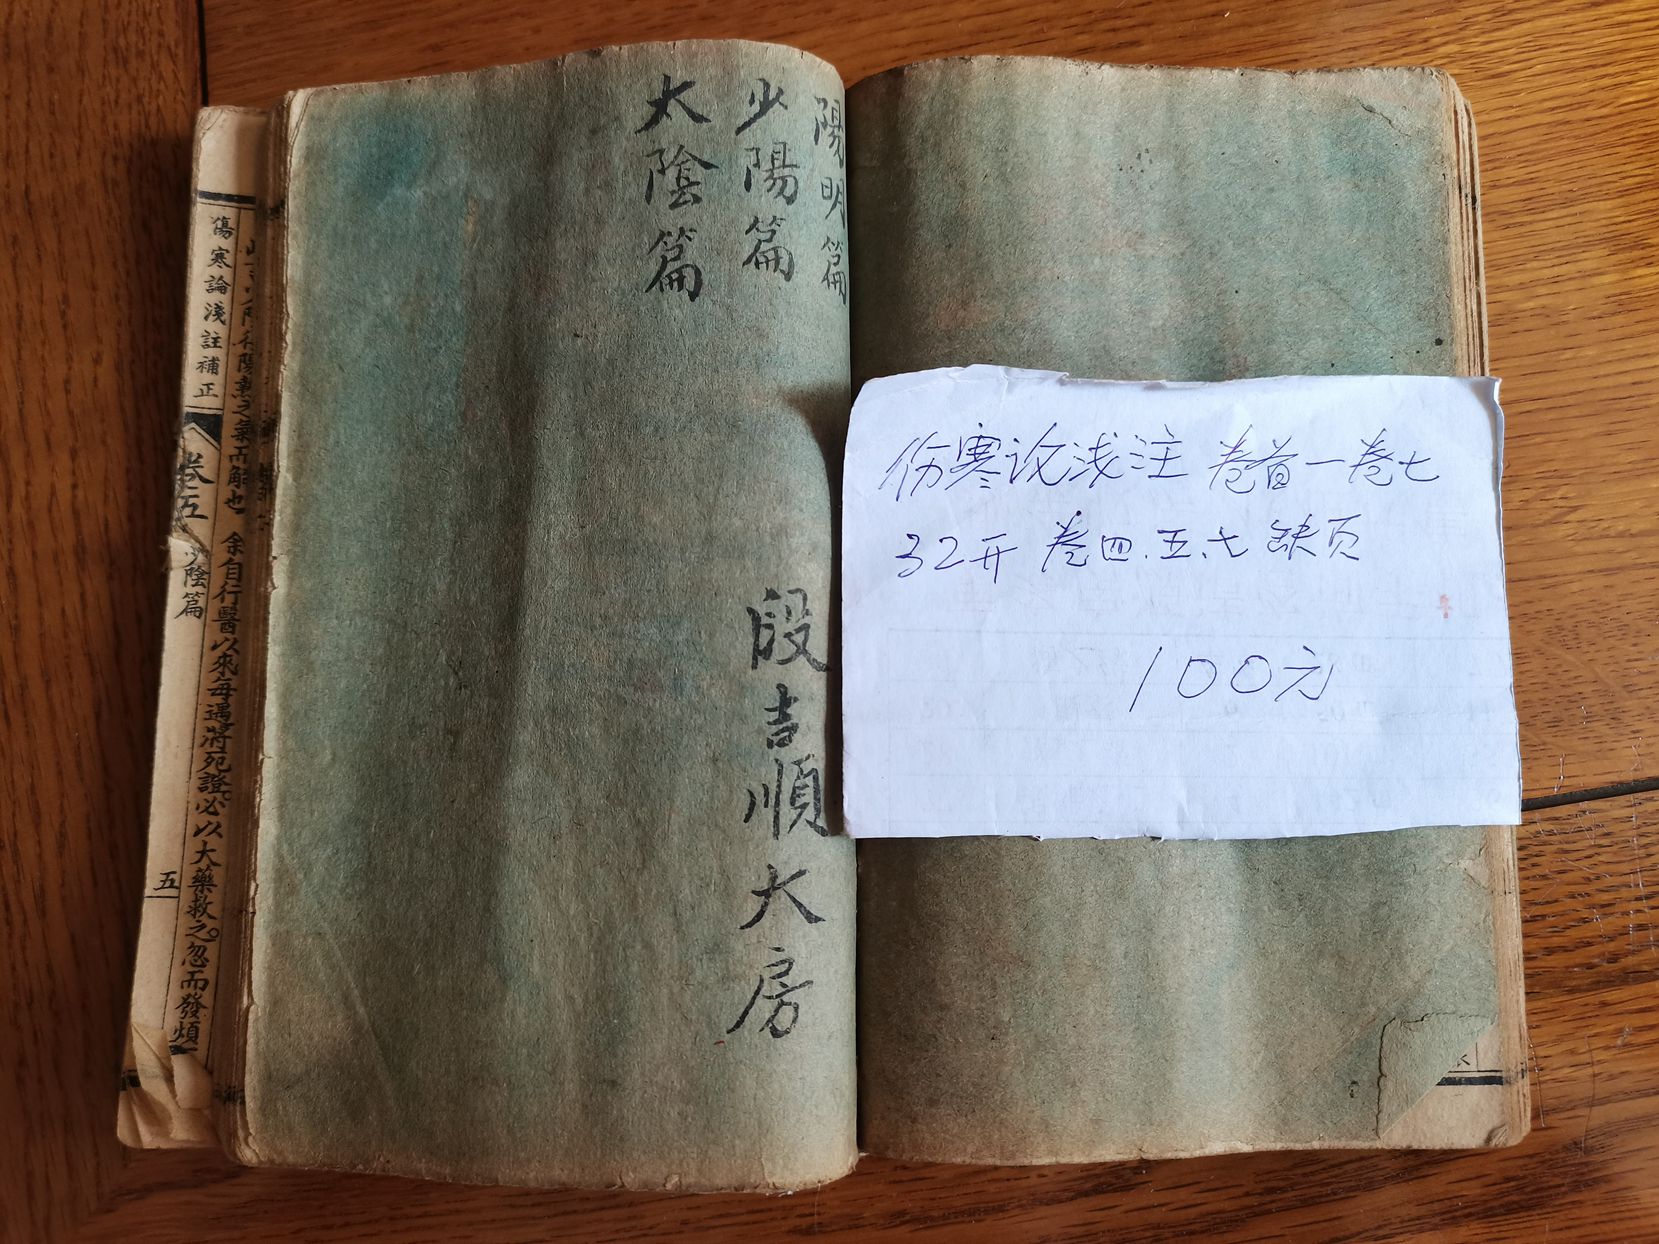 陽明篇
少陽篇
太陰篇
段吉順大房
伤寒论浅注 卷首一卷七
32开 卷四.五.七 缺页
100元
傷寒論淺註補正
卷五
少陰篇
五
之氣而解也 余自行醫以來每遇將死證必以大藥救之忽而發煩